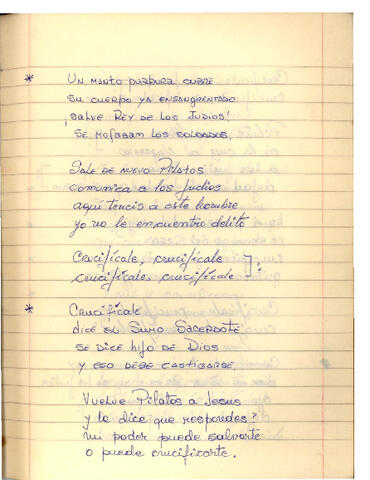 * Un manto purpura cubre
su cuerpo ya ensangrentado
¡salve Rey de los Judios!
se mofaban los soldados.
Sale de nuevo Pilatos
comunica a los judios
aqui teneis a este hombre
yo no le encuentro delito
Crucifícale, crucificale
crucificale, crucificale ] :
* Crucifícale
dice el Sumo Sacerdote
se dice hijo de Dios
y eso debe castigarse.
Vuelve Pilatos a Jesus
y le dice que respondes?
mi poder puede salvarte
o puede crucificarte.